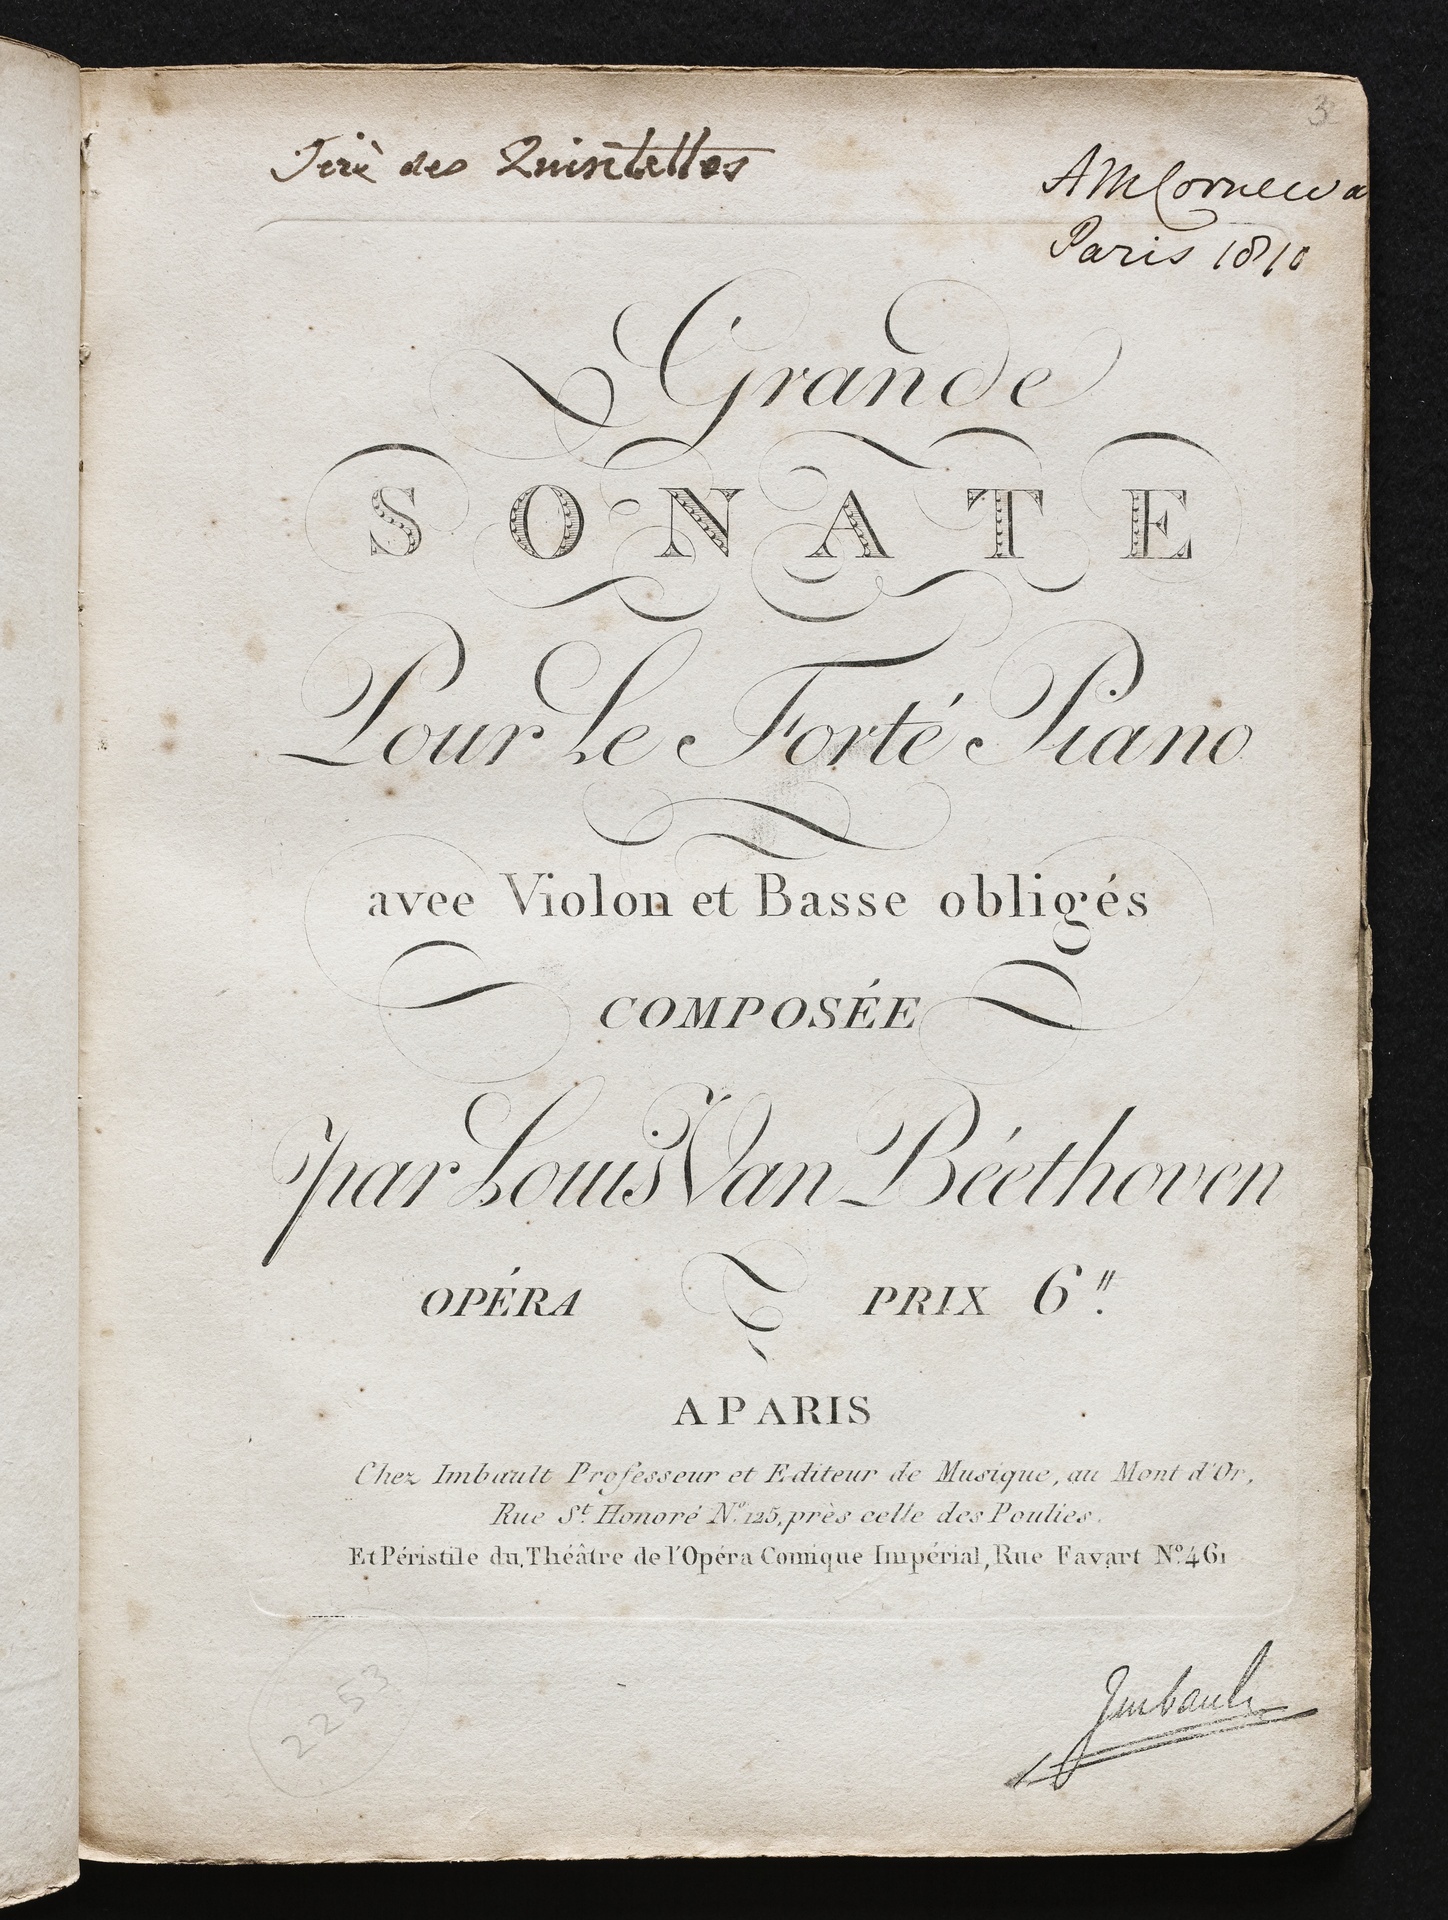 3
Tiré des Quintettes
AMCornewa
Paris 1810
Grande
SONATE
Pour Le Forté Piano
avec Violon et Basse obligés
COMPOSÉE
par Louis Van Béethoven
OPÉRA PRIX 6".
A PARIS
Chez Imbault Professeur et Editeur de Musique, au Mont d'Or,
Rue St. Honoré No. 125, près celle des Poulies.
Et Péristile du Théâtre de l'Opéra Comique Impérial, Rue Favart No. 461
2253
Imbault